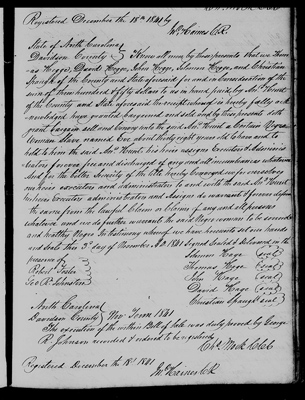 Registered December the 18th 1841 by
Jno Haines C.R.
State of North Carolina
Davidson County Know all men by these presents that we Thom-
as Hege, David Hege, John Hege, Solomon Hege, and Christian
Spaugh of the County and State aforesaid for and in consideration of the
sum of three hundred & fifty dollars to us in hand paid, by
of the County and State aforesaid the receipt whereof is hereby fully ack-
nowledged have granted bargained and sold, and by these presents doth
grant bargain sell and convey unto the said Hunt a Certain Negro
Woman Slave named aged about thirty eight years old to have and to
hold to him the said Hunt his heirs Executors & Adminis-
trators forever free and discharged of any and all incumbrances whatever
And for the better Security of the title hereby Conveyed we for ourselves
our heirs executors and administrators to and with the said Hunt
his heirs Executors administrators and assigns do warrant & forever defend
the same from the lawful Claim or Claims of any and all persons
whatever, and we further warrant the said Negro woman to be sound
and healthy In testimony whereof we have hereunto set our hands
and Seals this 3rd day of November A.D. 1841 Signed Sealed & Delivered in the
presence of Solomon Hege (seal)
Robert Foster Thomas Hege (seal)
Geo. R. Johnston John Hege (seal)
David Hege (seal)
Christian Spaugh (seal)
North Carolina
Davidson County Nov Term 1841
The execution of the within Bill of Sale was duly proved by George
R. Johnson recorded & ordered to be registered
Chs Mock Clk
Registered December the 18th 1841
Jno Haines C.R.